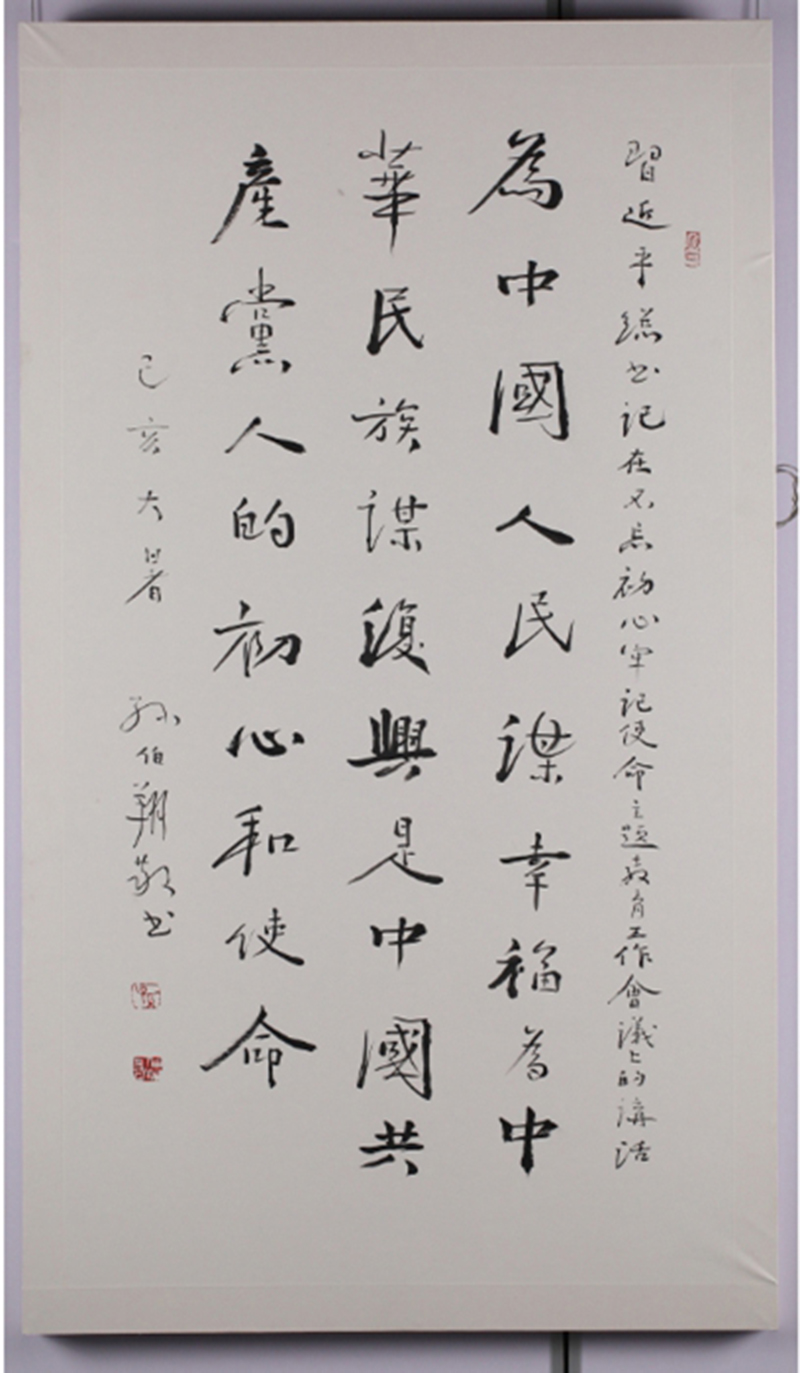 習近平總书記在不忘初心牢記使命主題教育工作會議上的講話
為中國人民謀幸福為中
華民族謀復興是中國共
產黨人的初心和使命
己亥大暑 孙伯翔敬书